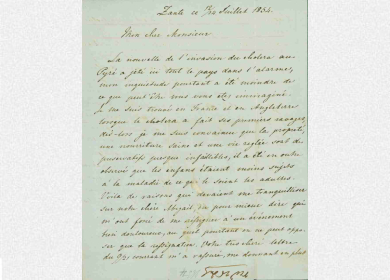 Zante ce 7/12 Juillet 1854.
Mon cher Monsieur
La nouvelle de l'invasion du cholera au
Pyré a jeté en tout le pays dans l'alarme,
mon inquiétude pourtant a été moindre de
ce que peut être vous vous êtes imaginé.
Je me suis trouvé en France et en Angleterre
lorsque le cholera a fait ses premiers ravages,
dès-lors je me suis convaincu que la propreté,
une nourriture saine et une vie reglée sont de
preservatifs presque infaillibles, il a été en outre
observé que les enfans étaient moins sujets
à la maladie de ce que le soient les adultes.
Voila de raisons qui devraient me tranquilliser
sur notre chère Abigail, ou pour mieux dire qui
m'ont forcé de me resigner à un événement
bien douloureux, au quel pourtant on ne peut oppo-
ser que la resignation. Votre très chère lettre
du 9/21 courant m'a rassuré, me donnant en plus